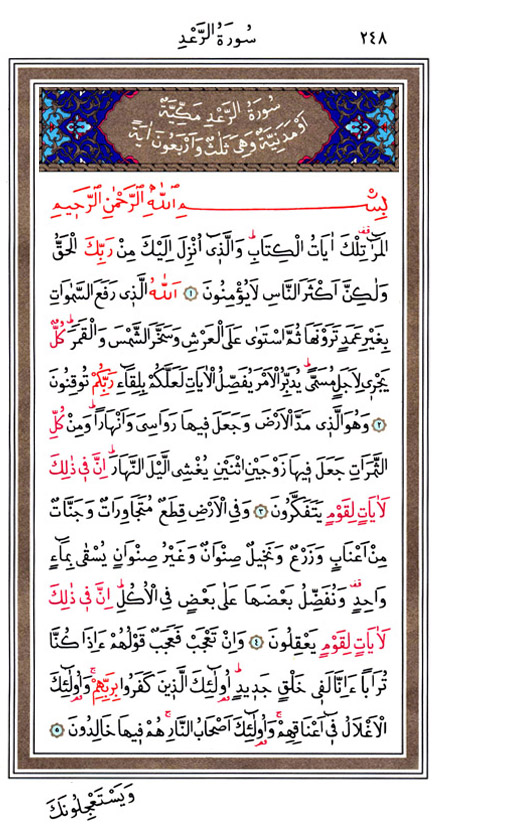 سُورَةُ الرَّعْدِ ٢٤٨
سُورَةُ الرَّعْدِ مَكِّيَّةٌ
اَوْ مَدَنِيَّةٌ وَهِىَ ثَلٰثٌ وَاَرْبَعُونَ اٰيَةً
بِسْمِ اللّٰهِ الرَّحْمٰنِ الرَّحِيمِ
الٓمٓرٰ تِلْكَ اٰيَاتُ الْكِتَابِۜ وَالَّذٖٓى اُنْزِلَ اِلَيْكَ مِنْ رَبِّكَ الْحَقُّ
وَلٰكِنَّ اَكْثَرَ النَّاسِ لَا يُؤْمِنُونَ ١ اَللّٰهُ الَّذٖى رَفَعَ السَّمٰوَاتِ
بِغَيْرِ عَمَدٍ تَرَوْنَهَا ثُمَّ اسْتَوٰى عَلَى الْعَرْشِ وَسَخَّرَ الشَّمْسَ وَالْقَمَرَۜ كُلٌّ
يَجْرٖى لِاَجَلٍ مُسَمًّىۜ يُدَبِّرُ الْاَمْرَ يُفَصِّلُ الْاٰيَاتِ لَعَلَّكُمْ بِلِقَٓاءِ رَبِّكُمْ تُوقِنُونَ
٢ وَهُوَ الَّذٖى مَدَّ الْاَرْضَ وَجَعَلَ فٖيهَا رَوَاسِىَ وَاَنْهَارًاۜ وَمِنْ كُلِّ
الثَّمَرَاتِ جَعَلَ فٖيهَا زَوْجَيْنِ اثْنَيْنِ يُغْشِى الَّيْلَ النَّهَارَۜ اِنَّ فٖى ذٰلِكَ
لَاٰيَاتٍ لِقَوْمٍ يَتَفَكَّرُونَ ٣ وَفِى الْاَرْضِ قِطَعٌ مُتَجَاوِرَاتٌ وَجَنَّاتٌ
مِنْ اَعْنَابٍ وَزَرْعٌ وَنَخٖيلٌ صِنْوَانٌ وَغَيْرُ صِنْوَانٍ يُسْقٰى بِمَٓاءٍ
وَاحِدٍ وَنُفَضِّلُ بَعْضَهَا عَلٰى بَعْضٍ فِى الْاُكُلِۜ اِنَّ فٖى ذٰلِكَ
لَاٰيَاتٍ لِقَوْمٍ يَعْقِلُونَ ٤ وَاِنْ تَعْجَبْ فَعَجَبٌ قَوْلُهُمْ ءَاِذَا كُنَّا
تُرَابًا ءَاِنَّا لَفٖى خَلْقٍ جَدٖيدٍۜ اُو۬لٰٓئِكَ الَّذٖينَ كَفَرُوا بِرَبِّهِمْۚ وَاُو۬لٰٓئِكَ
الْاَغْلَالُ فٖٓى اَعْنَاقِهِمْۚ وَاُو۬لٰٓئِكَ اَصْحَابُ النَّارِۚ هُمْ فٖيهَا خَالِدُونَ ٥
وَيَسْتَعْجِلُونَكَ